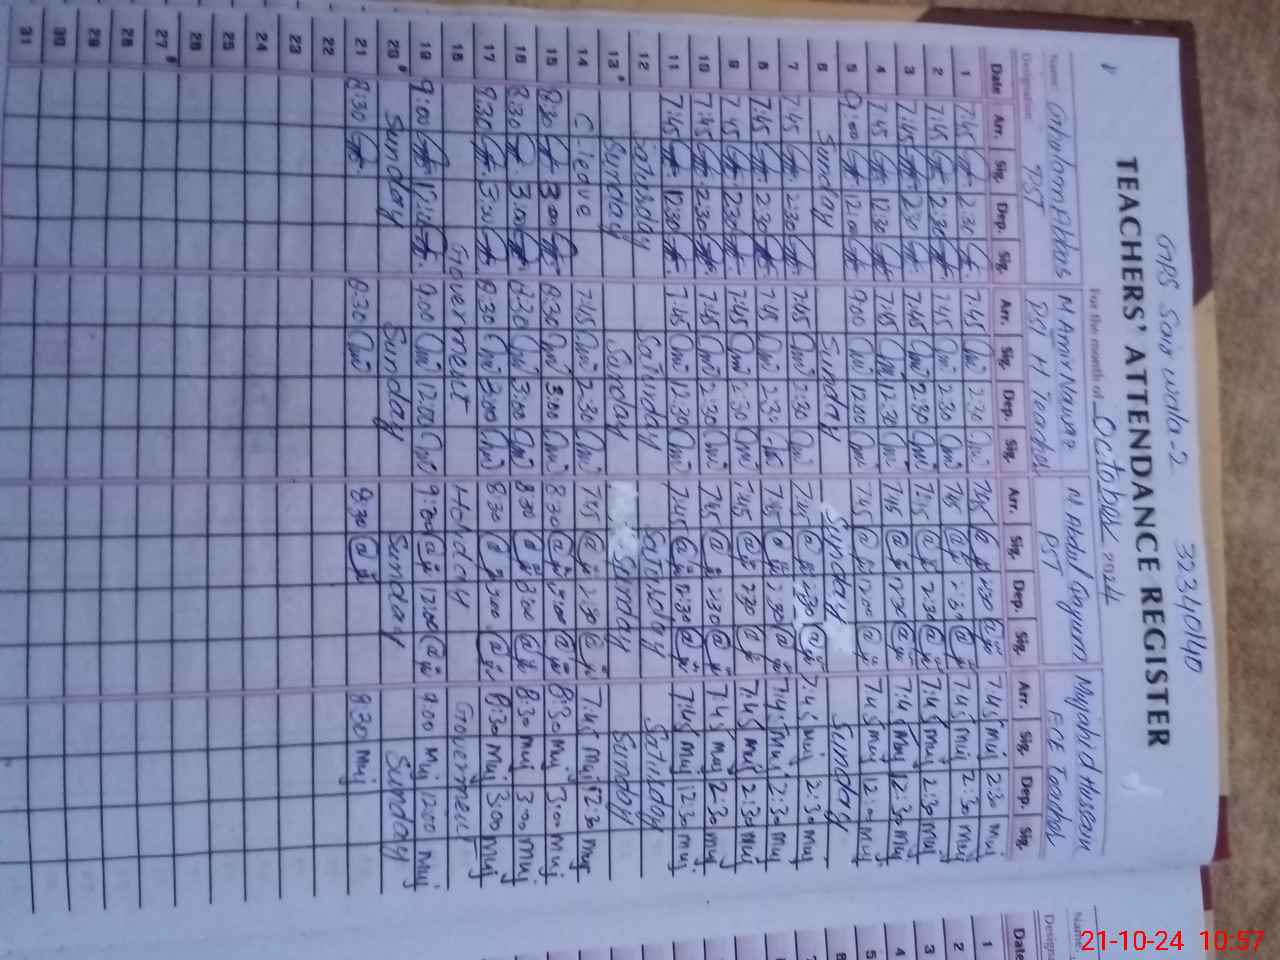 GPS Sain wala-2 32340140
TEACHERS' ATTENDANCE REGISTER
For the month of October 2024
Name: Ghulam Abbas M Amir Nawaz M Abdul Qayum Mujahid Hussain
Designation PST PST H Teacher PST ECE Teacher
Date Arr. Sig. Dep. Sig. Arr. Sig. Dep. Sig. Arr. Sig. Dep. Sig. Arr. Sig. Dep. Sig.
1 7:45 2:30 7:45 2:30 7:45 2:30 7:45 muj 2:30 muj
2 7:45 2:30 7:45 2:30 7:45 2:30 7:45 muj 2:30 muj
3 7:45 2:30 7:45 2:30 7:45 2:30 7:45 muj 2:30 muj
4 7:45 12:30 7:45 12:30 7:45 12:30 7:45 muj 12:30 muj
5 9:00 12:00 9:00 12:00 7:45 12:00 7:45 muj 12:00 muj
6 Sunday Sunday Sunday Sunday
7 7:45 2:30 7:45 2:30 7:45 2:30 7:45 muj 2:30 muj
8 7:45 2:30 7:45 2:30 7:45 2:30 7:45 muj 2:30 muj
9 7:45 2:30 7:45 2:30 7:45 2:30 7:45 muj 2:30 muj
10 7:45 2:30 7:45 2:30 7:45 2:30 7:45 muj 2:30 muj
11 7:45 12:30 7:45 12:30 7:45 12:30 7:45 muj 12:30 muj
12 Saturday Saturday Saturday Saturday
13 Sunday Sunday Sunday Sunday
14 C leave 7:45 2:30 7:45 2:30 7:45 muj 2:30 muj
15 8:30 3:00 8:30 3:00 8:30 3:00 8:30 muj 3:00 muj
16 8:30 3:00 8:30 3:00 8:30 3:00 8:30 muj 3:00 muj
17 8:30 3:00 8:30 3:00 8:30 3:00 8:30 muj 3:00 muj
18 Goverment Holiday Goverment
19 9:00 12:00 9:00 12:00 9:00 12:00 9:00 muj 12:00 muj
20 Sunday Sunday Sunday Sunday
21 8:30 8:30 8:30 8:30 muj
22
23
24
25
26
27
28
29
30
31
Name:
Designa
Date
1
2
3
4
5
6
21-10-24 10:57